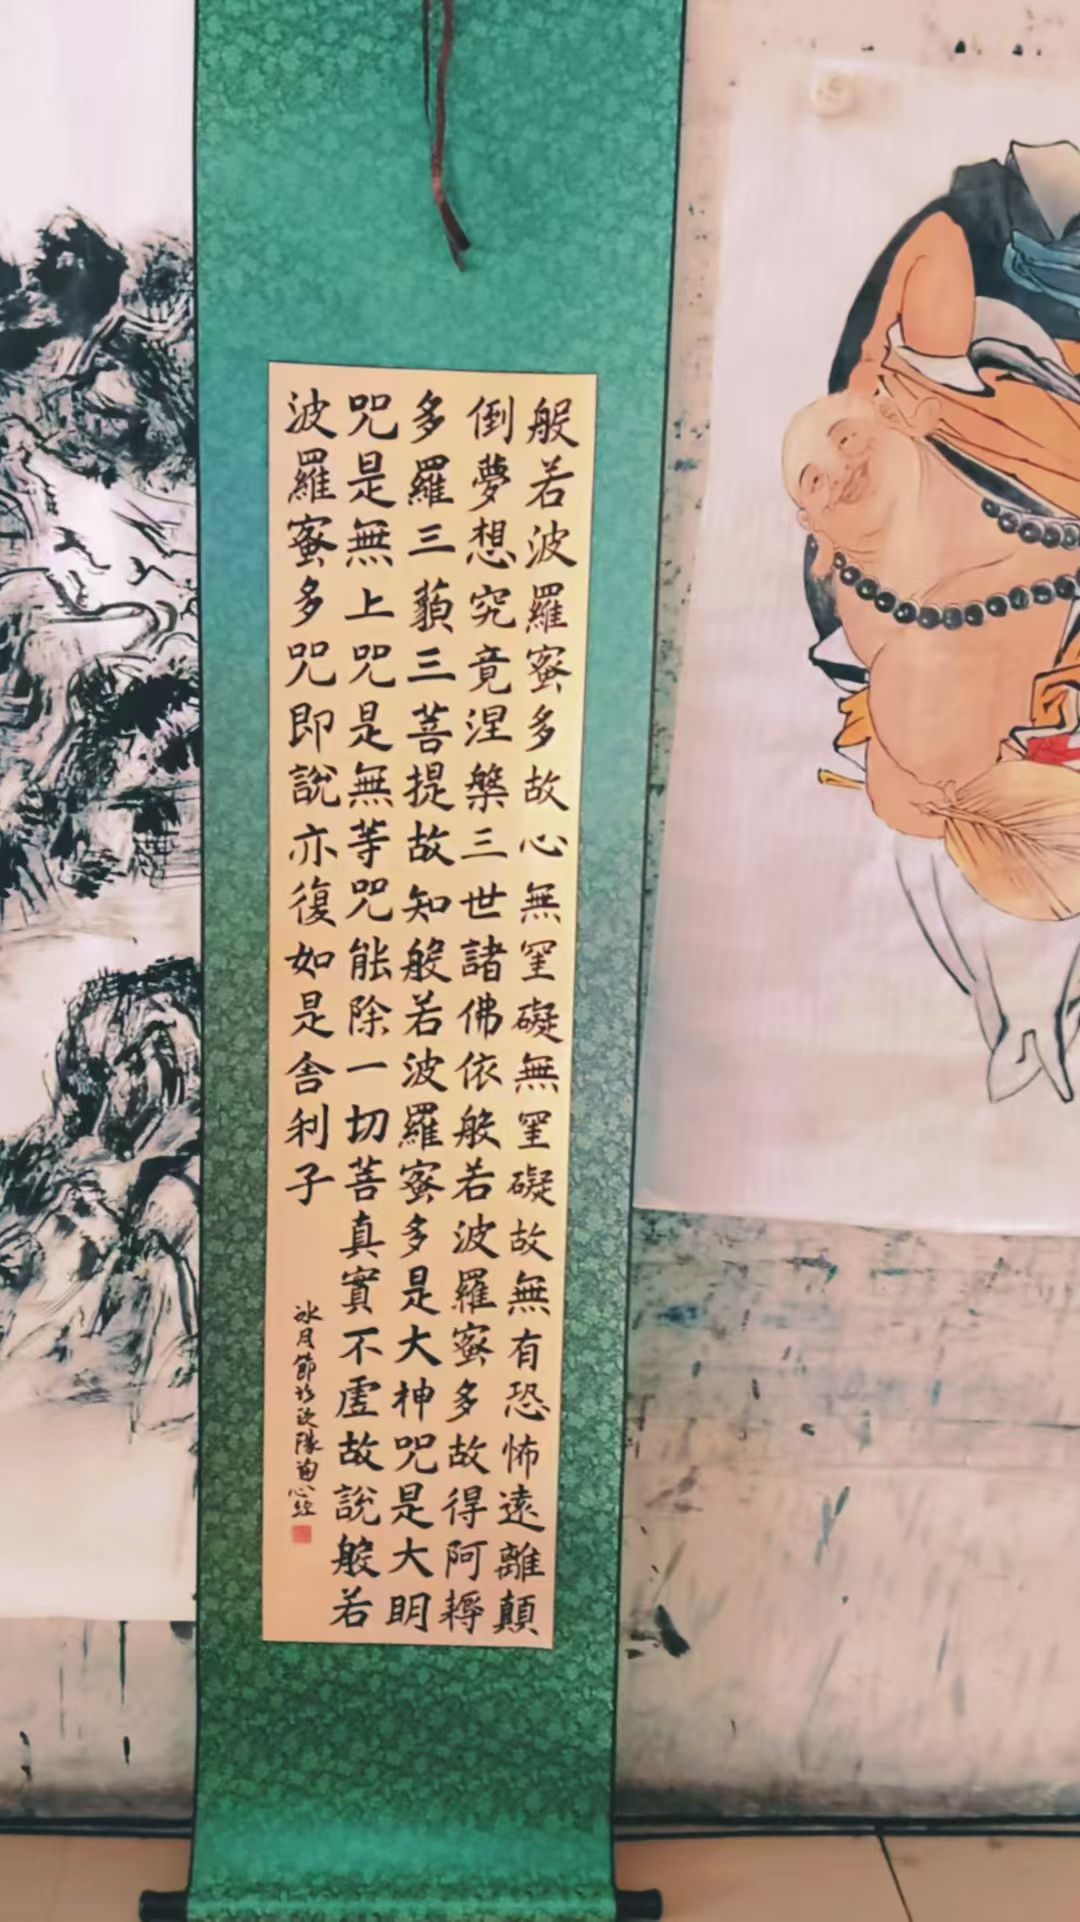 般若波羅蜜多故心無罣礙無罣礙故無有恐怖遠離顛
倒夢想究竟涅槃三世諸佛依般若波羅蜜多故得阿耨
多羅三藐三菩提故知般若波羅蜜多是大神咒是大明
咒是無上咒是無等咒能除一切菩真實不虛故說般若
波羅蜜多咒即說亦復如是舍利子
冰月節心經